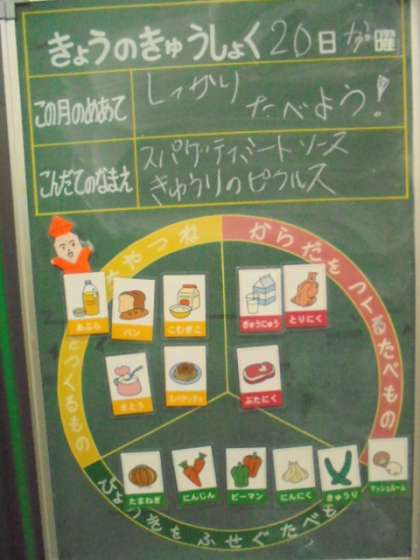 きょうのきゅうしょく 20日 か曜
この月のめあて
しっかり
たべよう!
こんだてのなまえ
スパゲッティミートソース
きゅうりのピクルス
やつね
からだをつくるたべもの
をつくるもの
あぶら
パン
こむぎこ
ぎゅうにゅう
とりにく
さとう
スパゲッティ
ぶたにく
たまねぎ
にんじん
ピーマン
にんにく
きゅうり
マッシュルーム
びょうきをふせぐたべも